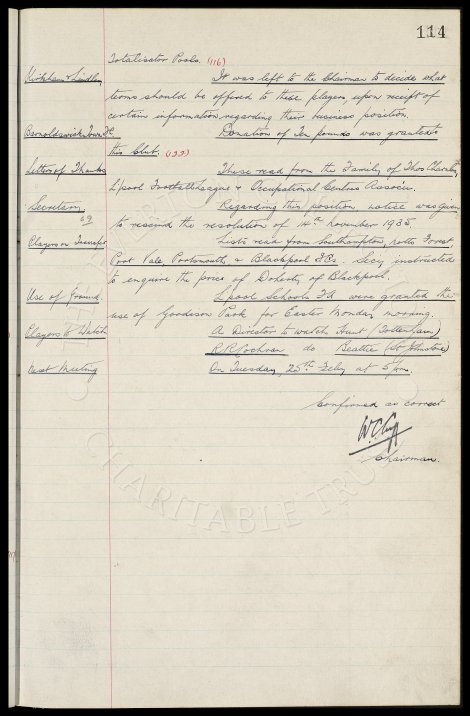 114
Totalisator Pools. (116)
Kirkham & Lindley It was left to the Chairman to decide what
terms should be offered to these players, upon receipt of
certain information regarding their business position.
Barnoldswick Town FC. Donation of Ten pounds was granted to
this Club. (122)
Letters of Thanks These read from the Family of Thos
L'pool Football League & Occupational Centres Associn.
Secretary Regarding this position notice was given
69 to rescind the resolution of 14th November 1935.
Players on Transfer Lists read from Southampton, Notts Forest,
Port Vale, Portsmouth, & Blackpool FCs. Secy instructed
to enquire the price of Doherty of Blackpool.
Use of Ground. L'pool Schools FA were granted the
use of Goodison Park for Easter Monday morning.
Players to Watch A Director to watch Hunt (Tottenham)
R R Cochran do Beattie (St Johnstone)
Next Meeting On Tuesday, 25th Feby at 5 pm.
Confirmed as correct
W C Cuff
Chairman.
EVERTON
CHARITABLE TRUST